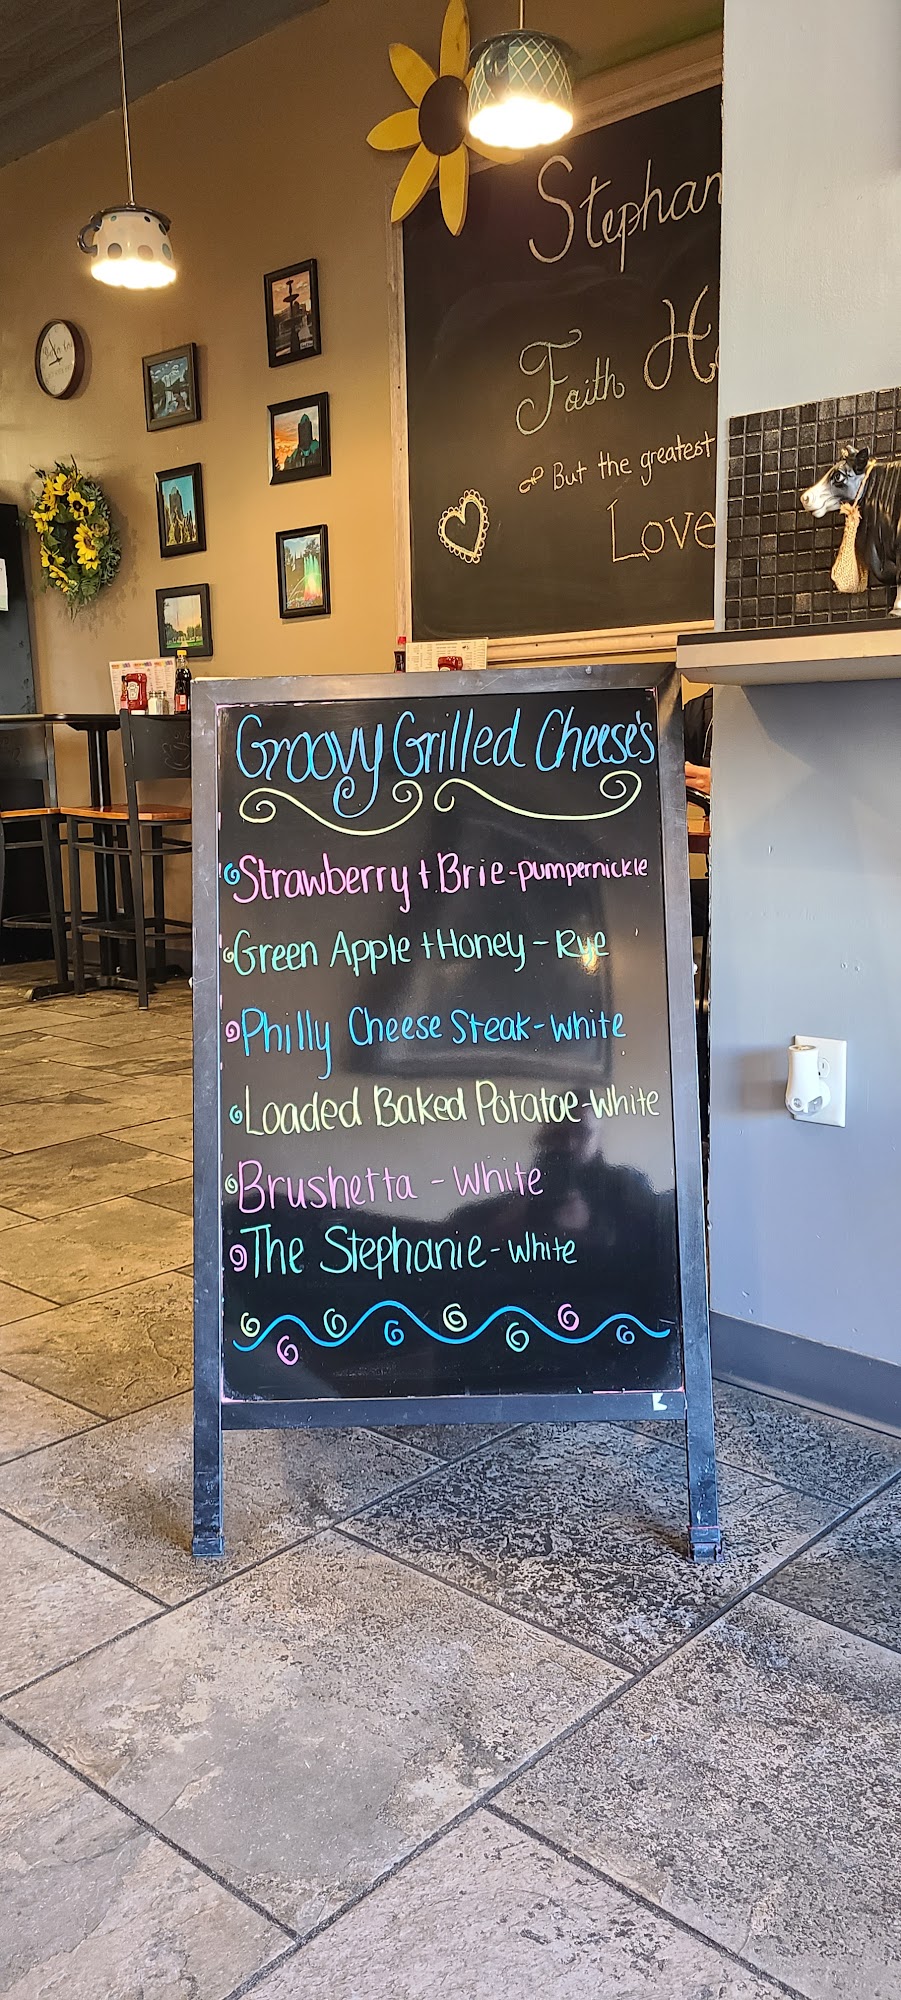 Stephan
Faith
But the greatest
Love
Groovy Grilled Cheese's
Strawberry + Brie - pumpernickle
Green Apple + Honey - Rye
Philly Cheese Steak - White
Loaded Baked Potatoe - White
Brushetta - White
The Stephanie - White